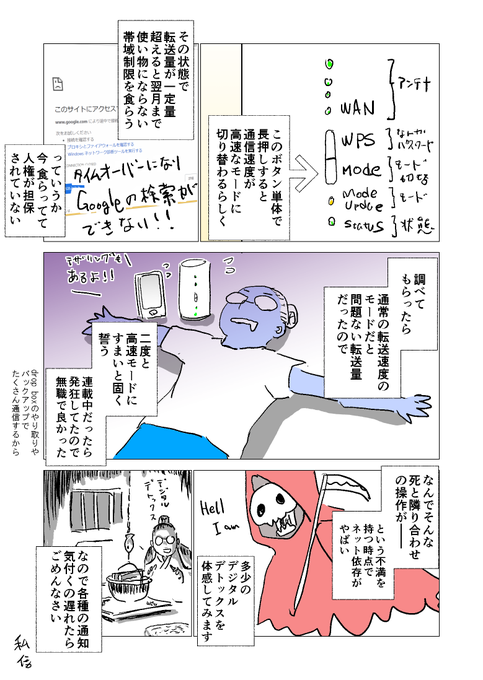 アンテナ
WAN
WPS
なんかパスワード
MODE
モード切替
Mode
update
モード
Status
状態
このボタン単体で
長押しすると
通信速度が
高速なモードに
切り替わるらしく
その状態で
転送量が一定量
超えると翌月まで
使い物にならない
帯域制限を食らう
このサイトにアクセス
タイムオーバーになり
Googleの検索が
できない!!
っていうか
今食らってて
人権が担保
されていない
調べて
もらったら
通常の転送速度の
モードだと
問題ない転送量
だったので
テザリングも
あるよ!!
二度と
高速モードに
すまいと固く
誓う
連載中だったら
発狂してたので
無職で良かった
drop boxのやり取りや
バックアップで
たくさん通信するから
なんでそんな
死と隣り合わせ
の操作が――
という不満を
持つ時点で
ネット依存が
やばい
Hell
I am
多少の
デジタル
デトックスを
体感してみます
デジタル
デトックス
なので各種の通知
気付くの遅れたら
ごめんなさい
私信